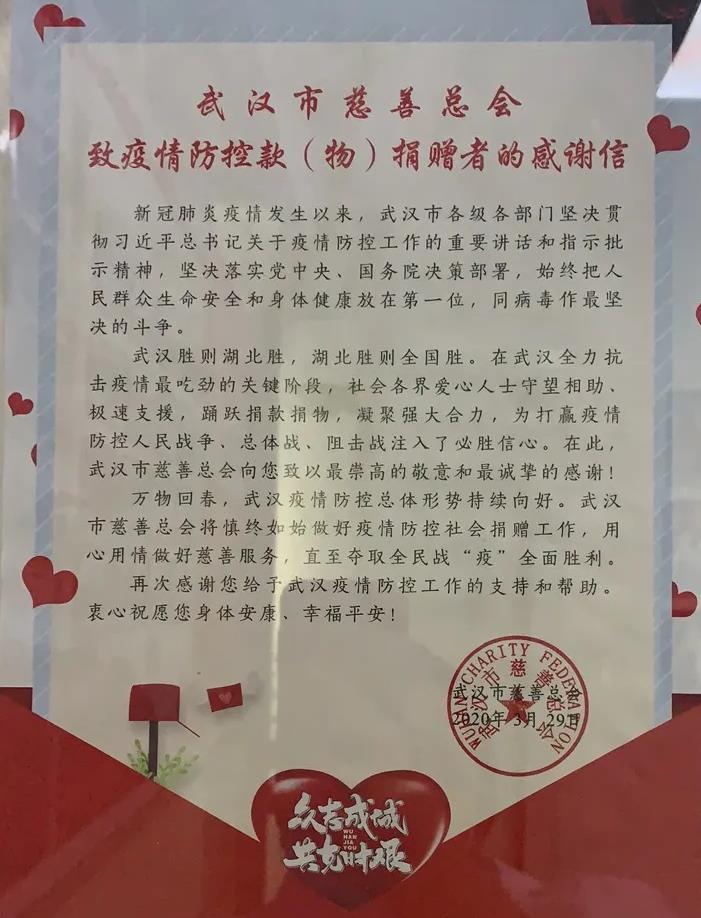 武汉市慈善总会
致疫情防控款（物）捐赠者的感谢信
新冠肺炎疫情发生以来，武汉市各级各部门坚决贯
彻习近平总书记关于疫情防控工作的重要讲话和指示批
示精神，坚决落实党中央、国务院决策部署，始终把人
民群众生命安全和身体健康放在第一位，同病毒作最坚
决的斗争。
武汉胜则湖北胜，湖北胜则全国胜。在武汉全力抗
击疫情最吃劲的关键阶段，社会各界爱心人士守望相助、
极速支援，踊跃捐款捐物，凝聚强大合力，为打赢疫情
防控人民战争、总体战、阻击战注入了必胜信心。在此，
武汉市慈善总会向您致以最崇高的敬意和最诚挚的感谢！
万物回春，武汉疫情防控总体形势持续向好。武汉
市慈善总会将慎终如始做好疫情防控社会捐赠工作，用
心用情做好慈善服务，直至夺取全民战“疫”全面胜利。
再次感谢您给予武汉疫情防控工作的支持和帮助。
衷心祝愿您身体安康、幸福平安！
WUHAN CHARITY FEDERATION
武汉市慈善总会
武汉市慈善总会
2020年3月29日
众志成城
WU
HAN
JIA
YOU
共克时艰